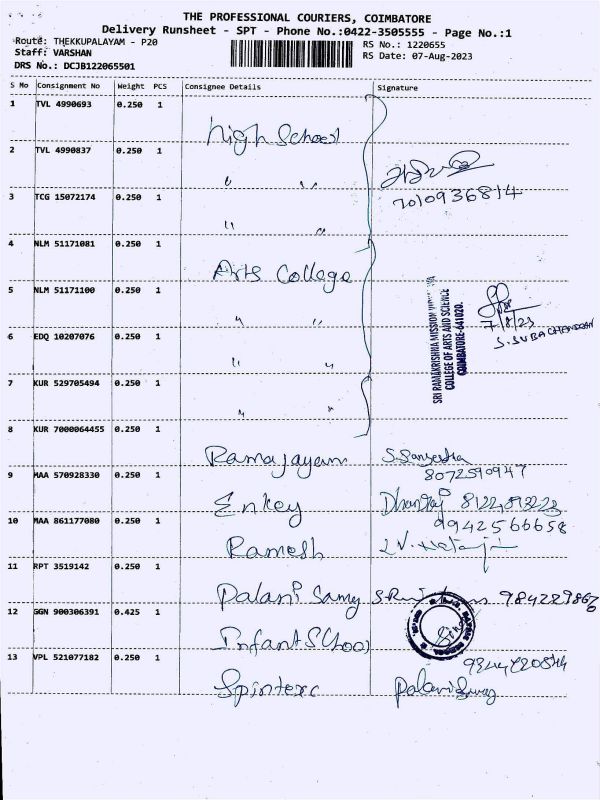 THE PROFESSIONAL COURIERS, COIMBATORE
Delivery Runsheet - SPT - Phone No.:0422-3505555 - Page No.:1
Route: THEKKUPALAYAM - P20 RS No.: 1220655
Staff: VARSHAN RS Date: 07-Aug-2023
DRS No.: DCJB122065501
S No Consignment No Weight PCS Consignee Details Signature
1 TVL 4990693 0.250 1
High School
2 TVL 4990837 0.250 1
" "
7010936814
3 TCG 15072174 0.250 1
" "
4 NLM 51171081 0.250 1
Arts College
5 NLM 51171100 0.250 1
" "
SRI RAMAKRISHNA MISSION
COLLEGE OF ARTS AND SCIENCE
COIMBATORE-641020.
7/8/23
S.SUBACHANDRAN
6 EDQ 10207076 0.250 1
" "
7 KUR 529705494 0.250 1
" "
8 KUR 7000064455 0.250 1
Ramajayam
8072590947
9 MAA 570928330 0.250 1
Enkey Dhanraj
10 MAA 861177080 0.250 1
9942566658
Ramesh
11 RPT 3519142 0.250 1
Palani Samy
12 GGN 900306391 0.425 1
Infant School
13 VPL 521077182 0.250 1
Spintexc Palaniswamy